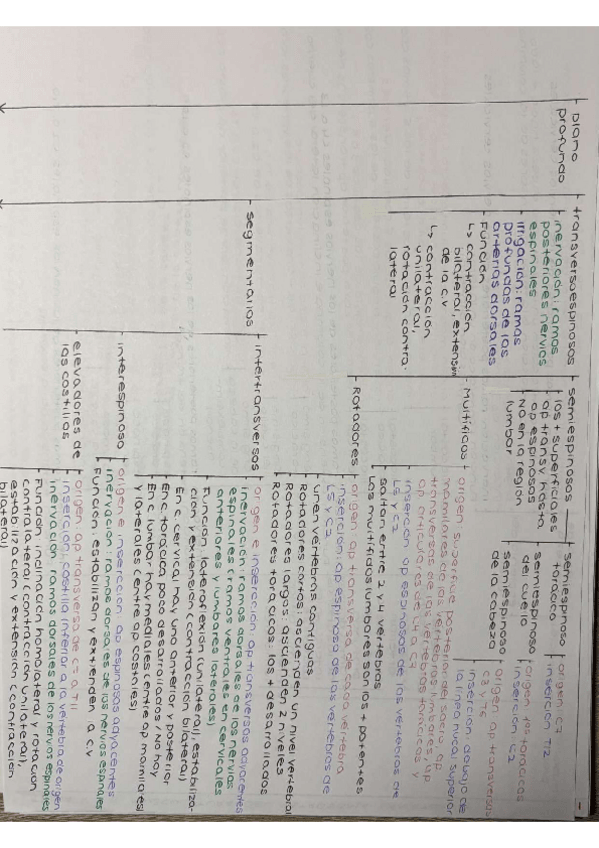 - plano
profundo
- transversoespinosos
inervación: ramos
posteriores nervios
espinales
irrigación: ramos
profundas de las
arterias dorsales
Función
↳ contracción
bilateral, extensión
de la c.v
↳ contracción
unilateral,
rotación contra-
lateral
- semiespinosos
los + superficiales
ap transv hasta
ap espinosos
NO en la región
lumbar
semiespinoso
torácico
origen: C7
inserción T12
semiespinoso
del cuello
origen tps torácicos
inserción C2
semiespinoso
de la cabeza
origen ap transversas
C3 y T6
inserción: debajo de
la línea nucal superior
- Multífidos
origen superficie posterior del sacro, ap
mamilares de las vértebras lumbares, ap
transversas de las vértebras torácicas y
ap articulares de C4 a C7
inserción ap espinosos de las vértebras de
L5 y C2
saltan entre 2 y 4 vértebras
Los multífidos lumbares son los + potentes
- Rotadores
origen ap transversa de cada vértebra
inserción ap espinoso de las vértebras de
L5 y C2
unen vértebras contiguas
Rotadores cortos: ascienden un nivel vertebral
Rotadores largos: ascienden 2 niveles
Rotadores torácicos: los + desarrollados
- segmentarios
intertransversos
origen e inserción ap transversas adyacentes
inervación: ramos dorsales de los nervios
espinales (ramos ventrales en cervicales
anteriores y lumbares laterales)
Función: lateroflexión (unilateral), estabiliza-
ción y extensión (contracción bilateral)
En c. cervical hay uno anterior y posterior
En c torácica poco desarrollados / No hay
En c lumbar hay mediales (entre ap mamilares)
y laterales (entre ap costales)
interespinoso
origen e inserción ap espinosas adyacentes
inervación: ramos dorsales de los nervios espinales
Función: estabilizan y extienden la c.v
elevadores de
las costillas
origen ap transversa de C7 a T11
inserción: costilla inferior a la vértebra de origen
inervación: ramos dorsales de los nervios espinales
Función: inclinación homolateral y rotación
contralateral (contracción unilateral),
estabilización y extensión (contracción
bilateral)